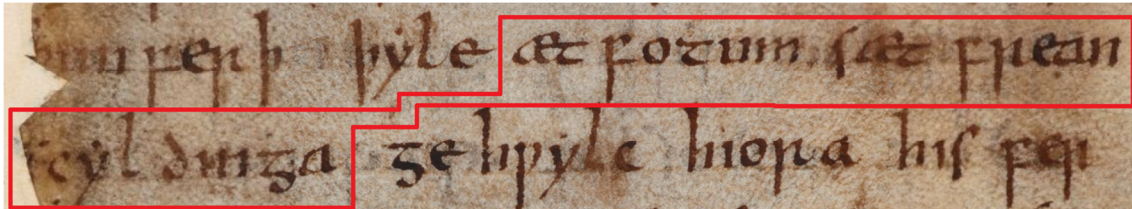 hun ferþ þyle æt fotum sæt frean
scyl dinga ge hƿylc hiora his fer